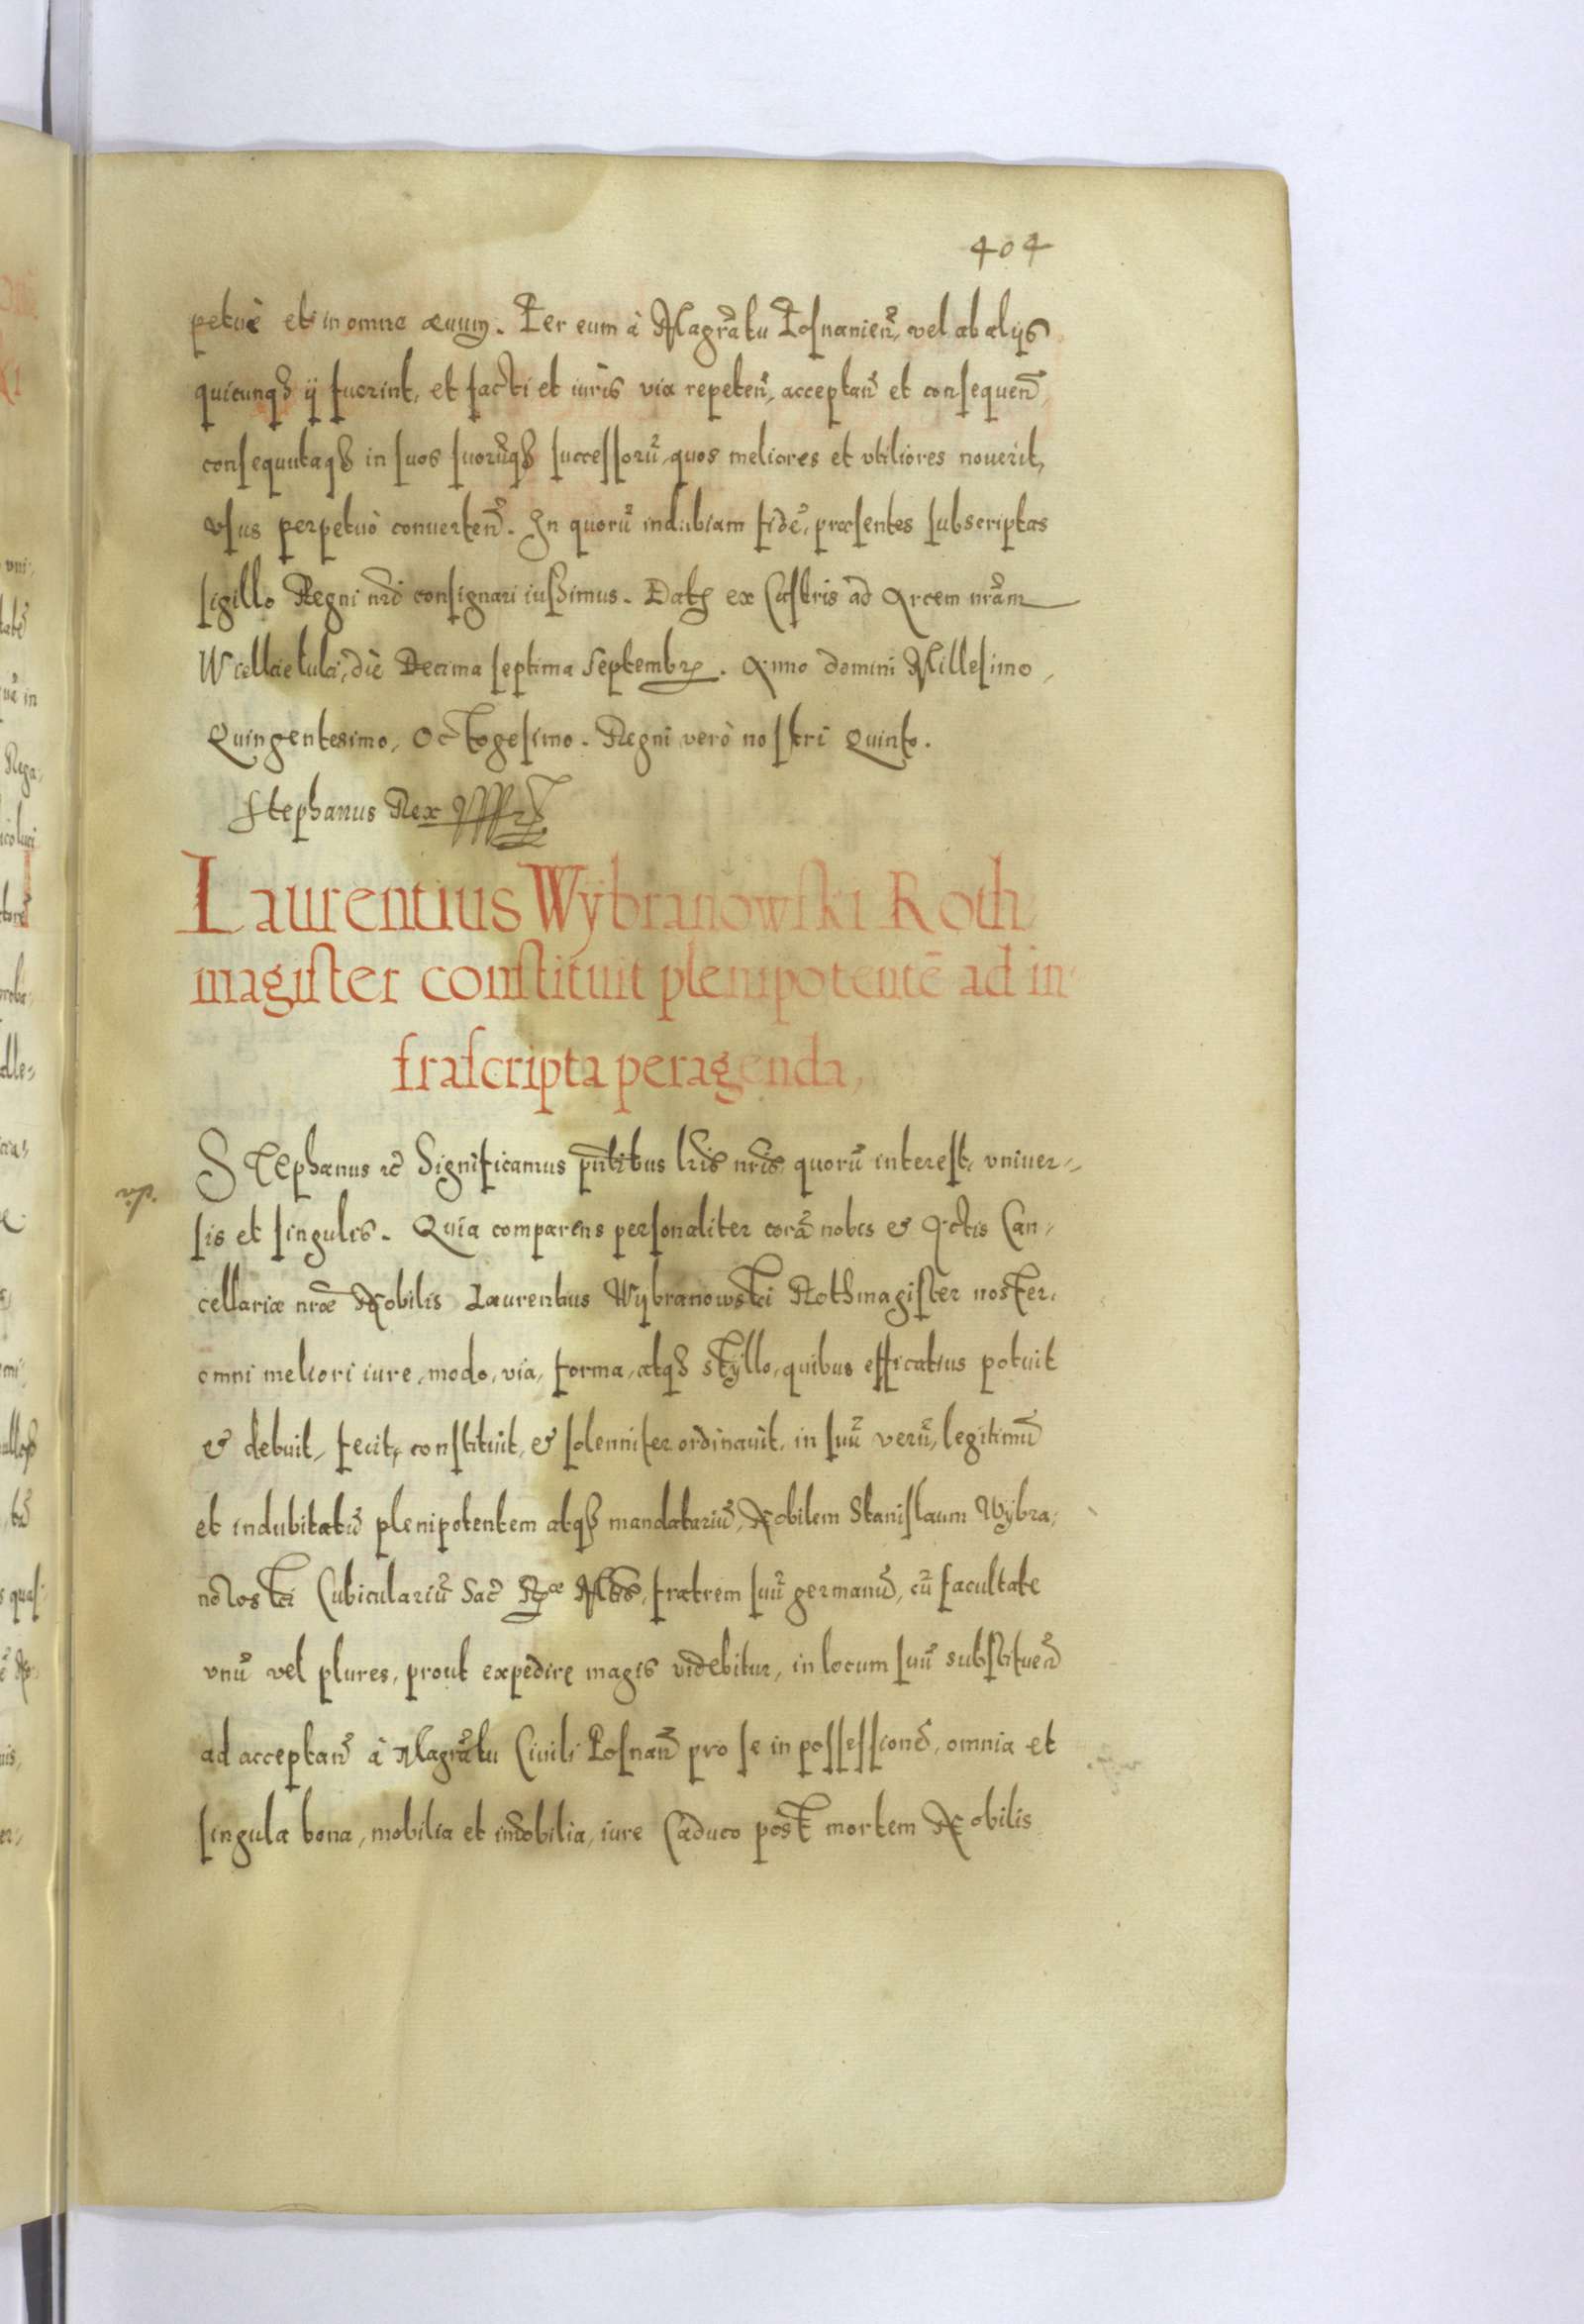 404
petuè et in omne æuum. Per eum à Magr̃atu Posnanieñ, vel ab alijs
quicunq́ꝫ ij fuerint, et facti et iuris via repeteñ, acceptañ et consequeñ,
consequutaq́ꝫ in suos suorũq́ꝫ successorũ, quos meliores et vtiliores nouerit,
vsus perpetuò conuerteñ. In quorũ indubiam fidẽ, præsentes subscriptas
sigillo Regni nr̃i consignari iussimus. Datꝫ ex Castris ad Arcem nr̃am
Wiellaeluki, die Decima septima Septembrꝭ. Anno domini Millesimo,
Quingentesimo, Octogesimo. Regni verò nostri Quinto.
Stephanus Rex
Laurentius Wybranowski Roth
magister constituit plenipotentẽ ad in-
frascripta peragenda,
STEphanus ꝛc̃ Significamus pñtibus lr̃is nr̃is, quorũ interest, vniuer-
sis et singulis. Quia comparens personaliter corã nobis & Actis Can-
cellariæ nr̃æ Nobilis Laurentius Wybranowski Rothmagister noster,
omni meliori iure, modo, via, forma, atq́ꝫ styllo, quibus efficatius potuit
& debuit, fecit, constituit, & solenniter ordinauit, in suũ verũ, legitimũ
et indubitatũ plenipotentem atq́ꝫ mandatariũ, Nobilem Stanislaum Wybra-
nowski Cubiculariũ Sac̃ Rꝭæ Mtis, fratrem suũ germanũ, cũ facultate
vnũ vel plures, prout expedire magis videbitur, in locum suũ substitueñ
ad acceptañ à Magr̃atu Ciuili Posnañ pro se in possessionẽ, omnia et
singula bona, mobilia et im̃obilia, iure Caduco post mortem Nobilis